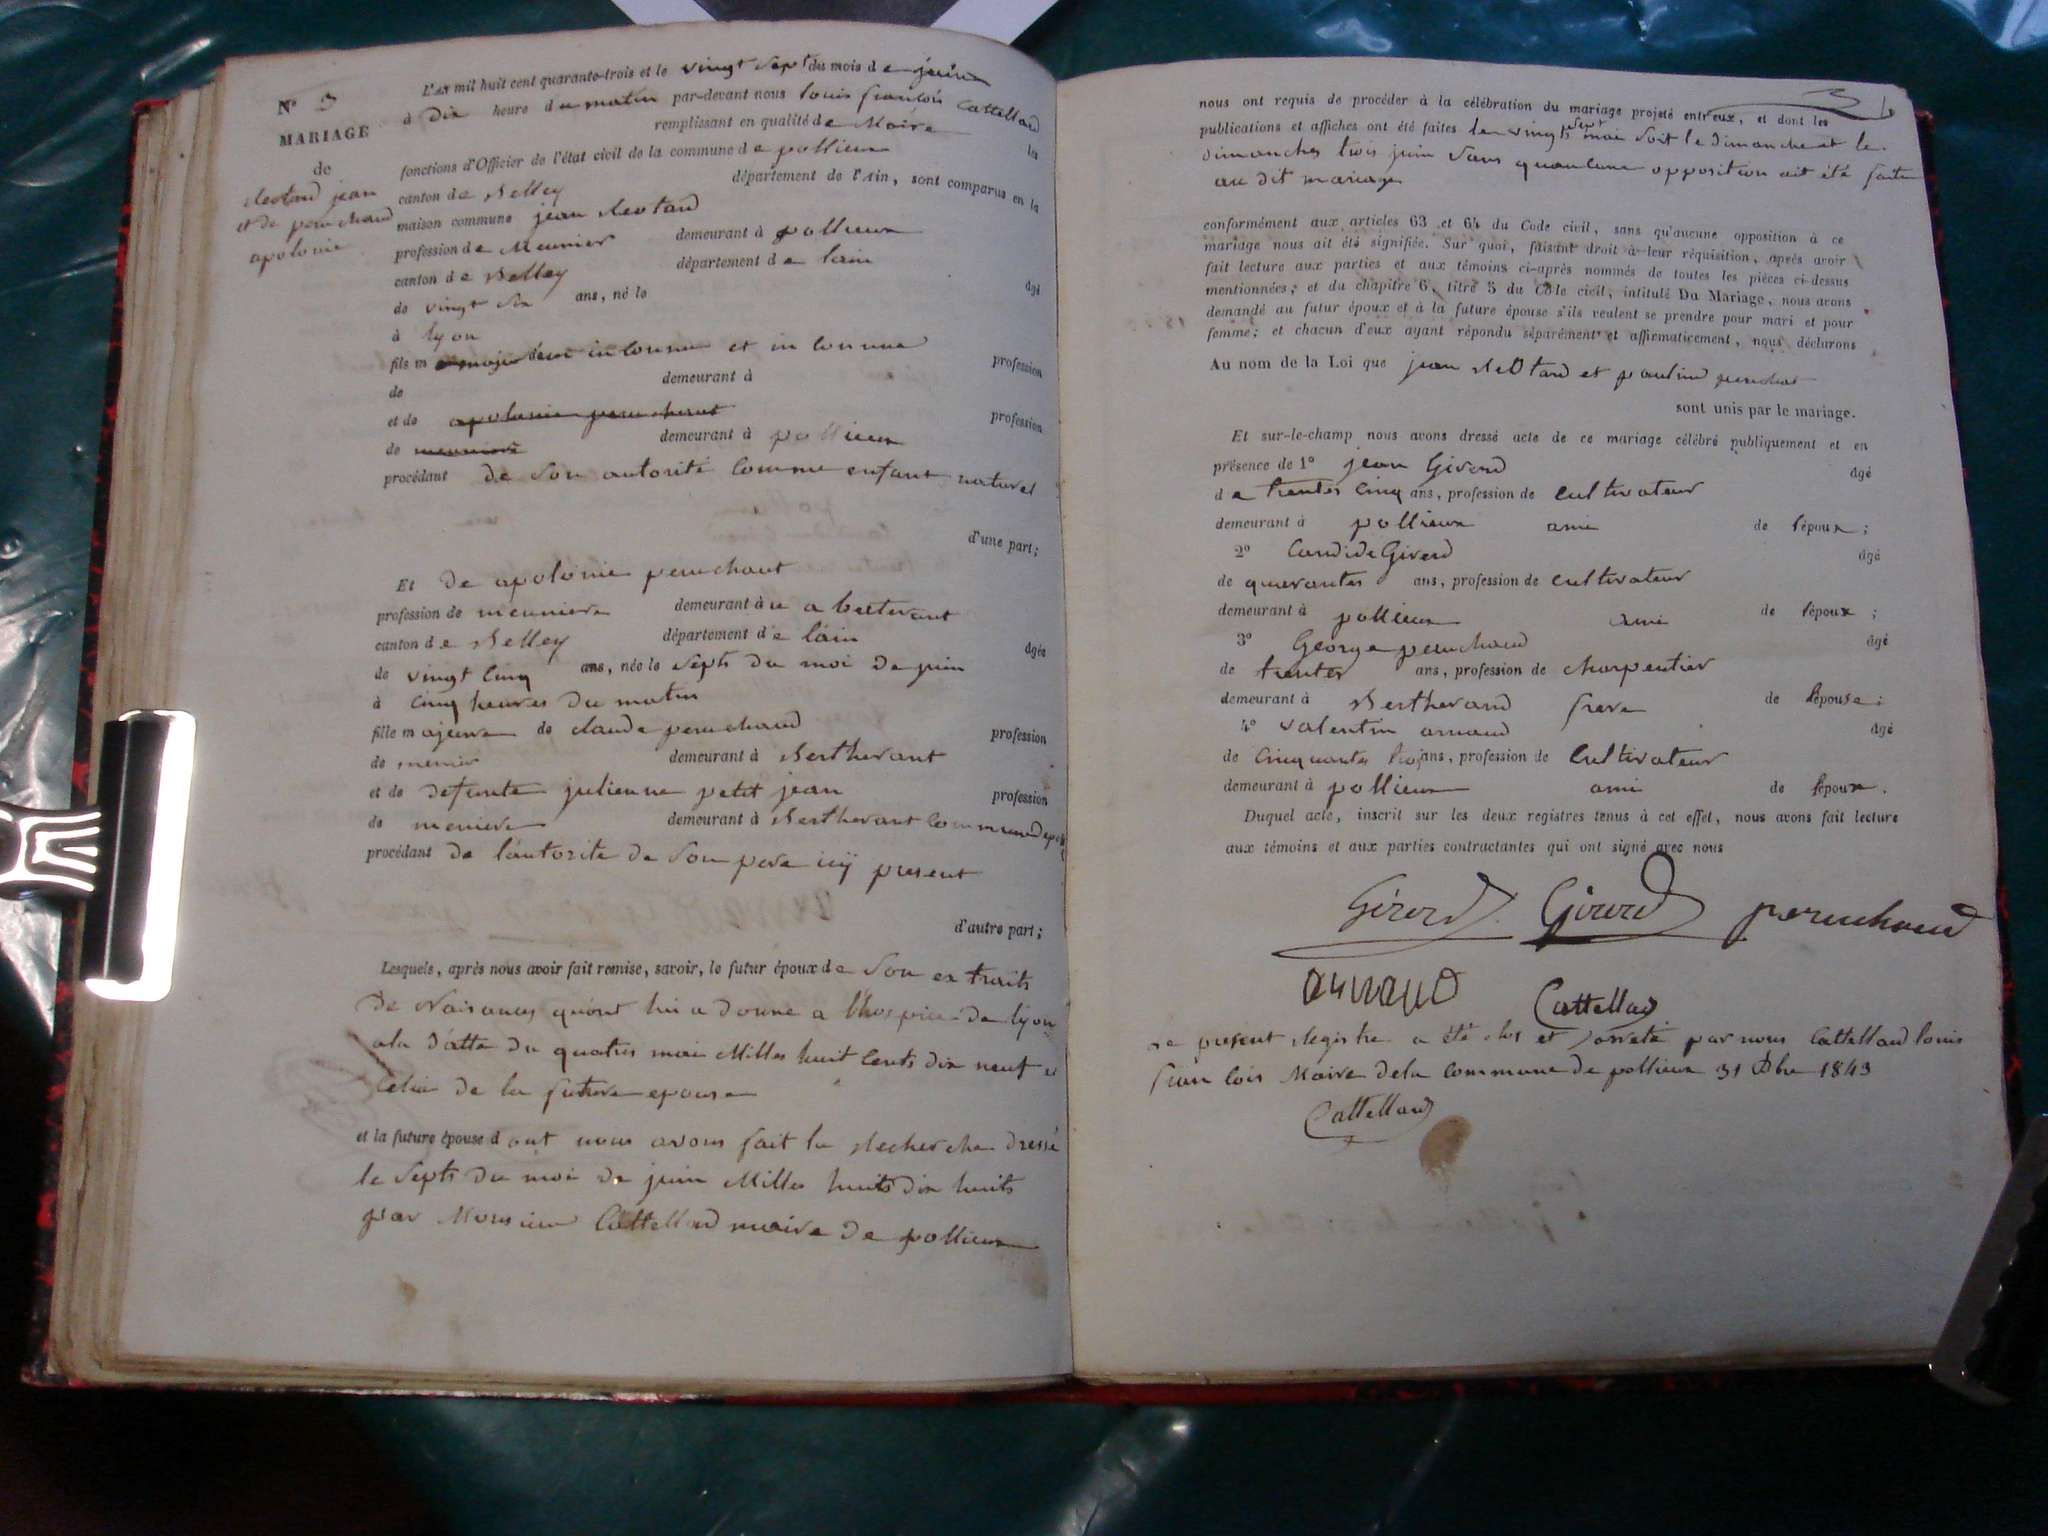 N° 3
MARIAGE
de
restand jean
et de peruchaud
apolonie
L'AN mil huit cent quarante-trois et le vingt sept du mois de juin
à Dix heure du matin par-devant nous louis francois Cattelland
remplissant en qualité de Maire les
fonctions d'Officier de l'état civil de la commune de pollieux
canton de Belley département de l'Ain, sont comparus en la
maison commune jean restand
profession de Meunier demeurant à pollieux
canton de Belley département de lain
âgé
de vingt six ans, né le
à lyon
fils majeur de inconnu et in connue profession
de demeurant à
et de apolonie peruchaut profession
de meuniere demeurant à pollieux
procédant de Son autorité Comme enfant naturel
d'une part;
Et De apolonie peruchaut
profession de meuniere demeurant à a berterant
canton de Belley département de lain âgée
de vingt Cinq ans, née le Septs du moi de juin
à Cinq heures du matin
fille majeure de claude peruchaud profession
de menier demeurant à Berthevant
et de defunte julienne petit jean profession
de meniere demeurant à Berthevant Commune de
procédant de l'autorite de Son pere icy present
d'autre part;
Lesquels, après nous avoir fait remise, savoir, le futur époux de Son ex traits
De Naisances qu'ont lui a donne a l'hospice de lyon
ala datte du quatres mai Milles huit Cents dix neuf et
Celui de la future epouse
et la future épouse dont nous avons fait la Recherche dressé
le Septs du moi de juin Milles huits dix huits
par Monsieur Cattelland maire de pollieux
nous ont requis de procéder à la célébration du mariage projeté entr'eux, et dont les
publications et affiches ont été faites le vingt sept mai Soit le dimanche et le
dimanches trois juin Sans quaucune opposition ait été faite
au dit mariage
conformément aux articles 63 et 64 du Code civil, sans qu'aucune opposition à ce
mariage nous ait été signifiée. Sur quoi, faisant droit à leur réquisition, après avoir
fait lecture aux parties et aux témoins ci-après nommés de toutes les pièces ci-dessus
mentionnées; et du chapitre 6, titre 5 du Code civil, intitulé Du Mariage, nous avons
demandé au futur époux et à la future épouse s'ils veulent se prendre pour mari et pour
femme; et chacun d'eux ayant répondu séparément et affirmativement, nous déclarons
Au nom de la Loi que jean restand et paulin peruchat
sont unis par le mariage.
Et sur-le-champ nous avons dressé acte de ce mariage célébré publiquement et en
présence de 1° jean Girerd âgé
de trentes Cinq ans, profession de Cultivateur
demeurant à pollieux ami de l'époux;
2° Candide Girerd âgé
de quarantes ans, profession de cultivateur
demeurant à pollieux ami de l'époux;
3° George peruchaud âgé
de trentes ans, profession de charpentier
demeurant à Bertherand frere de l'épouse;
4° valentin arnaud âgé
de Cinquantes trois ans, profession de Cultivateur
demeurant à pollieux ami de l'époux.
Duquel acte, inscrit sur les deux registres tenus à cet effet, nous avons fait lecture
aux témoins et aux parties contractantes qui ont signé avec nous
Girerd Girerd peruchaud
arnaud Cattelland
Le present Registre a été clos et arreté par nous Cattelland louis
francois Maire dela commune de pollieux 31 Dbre 1843
Cattelland